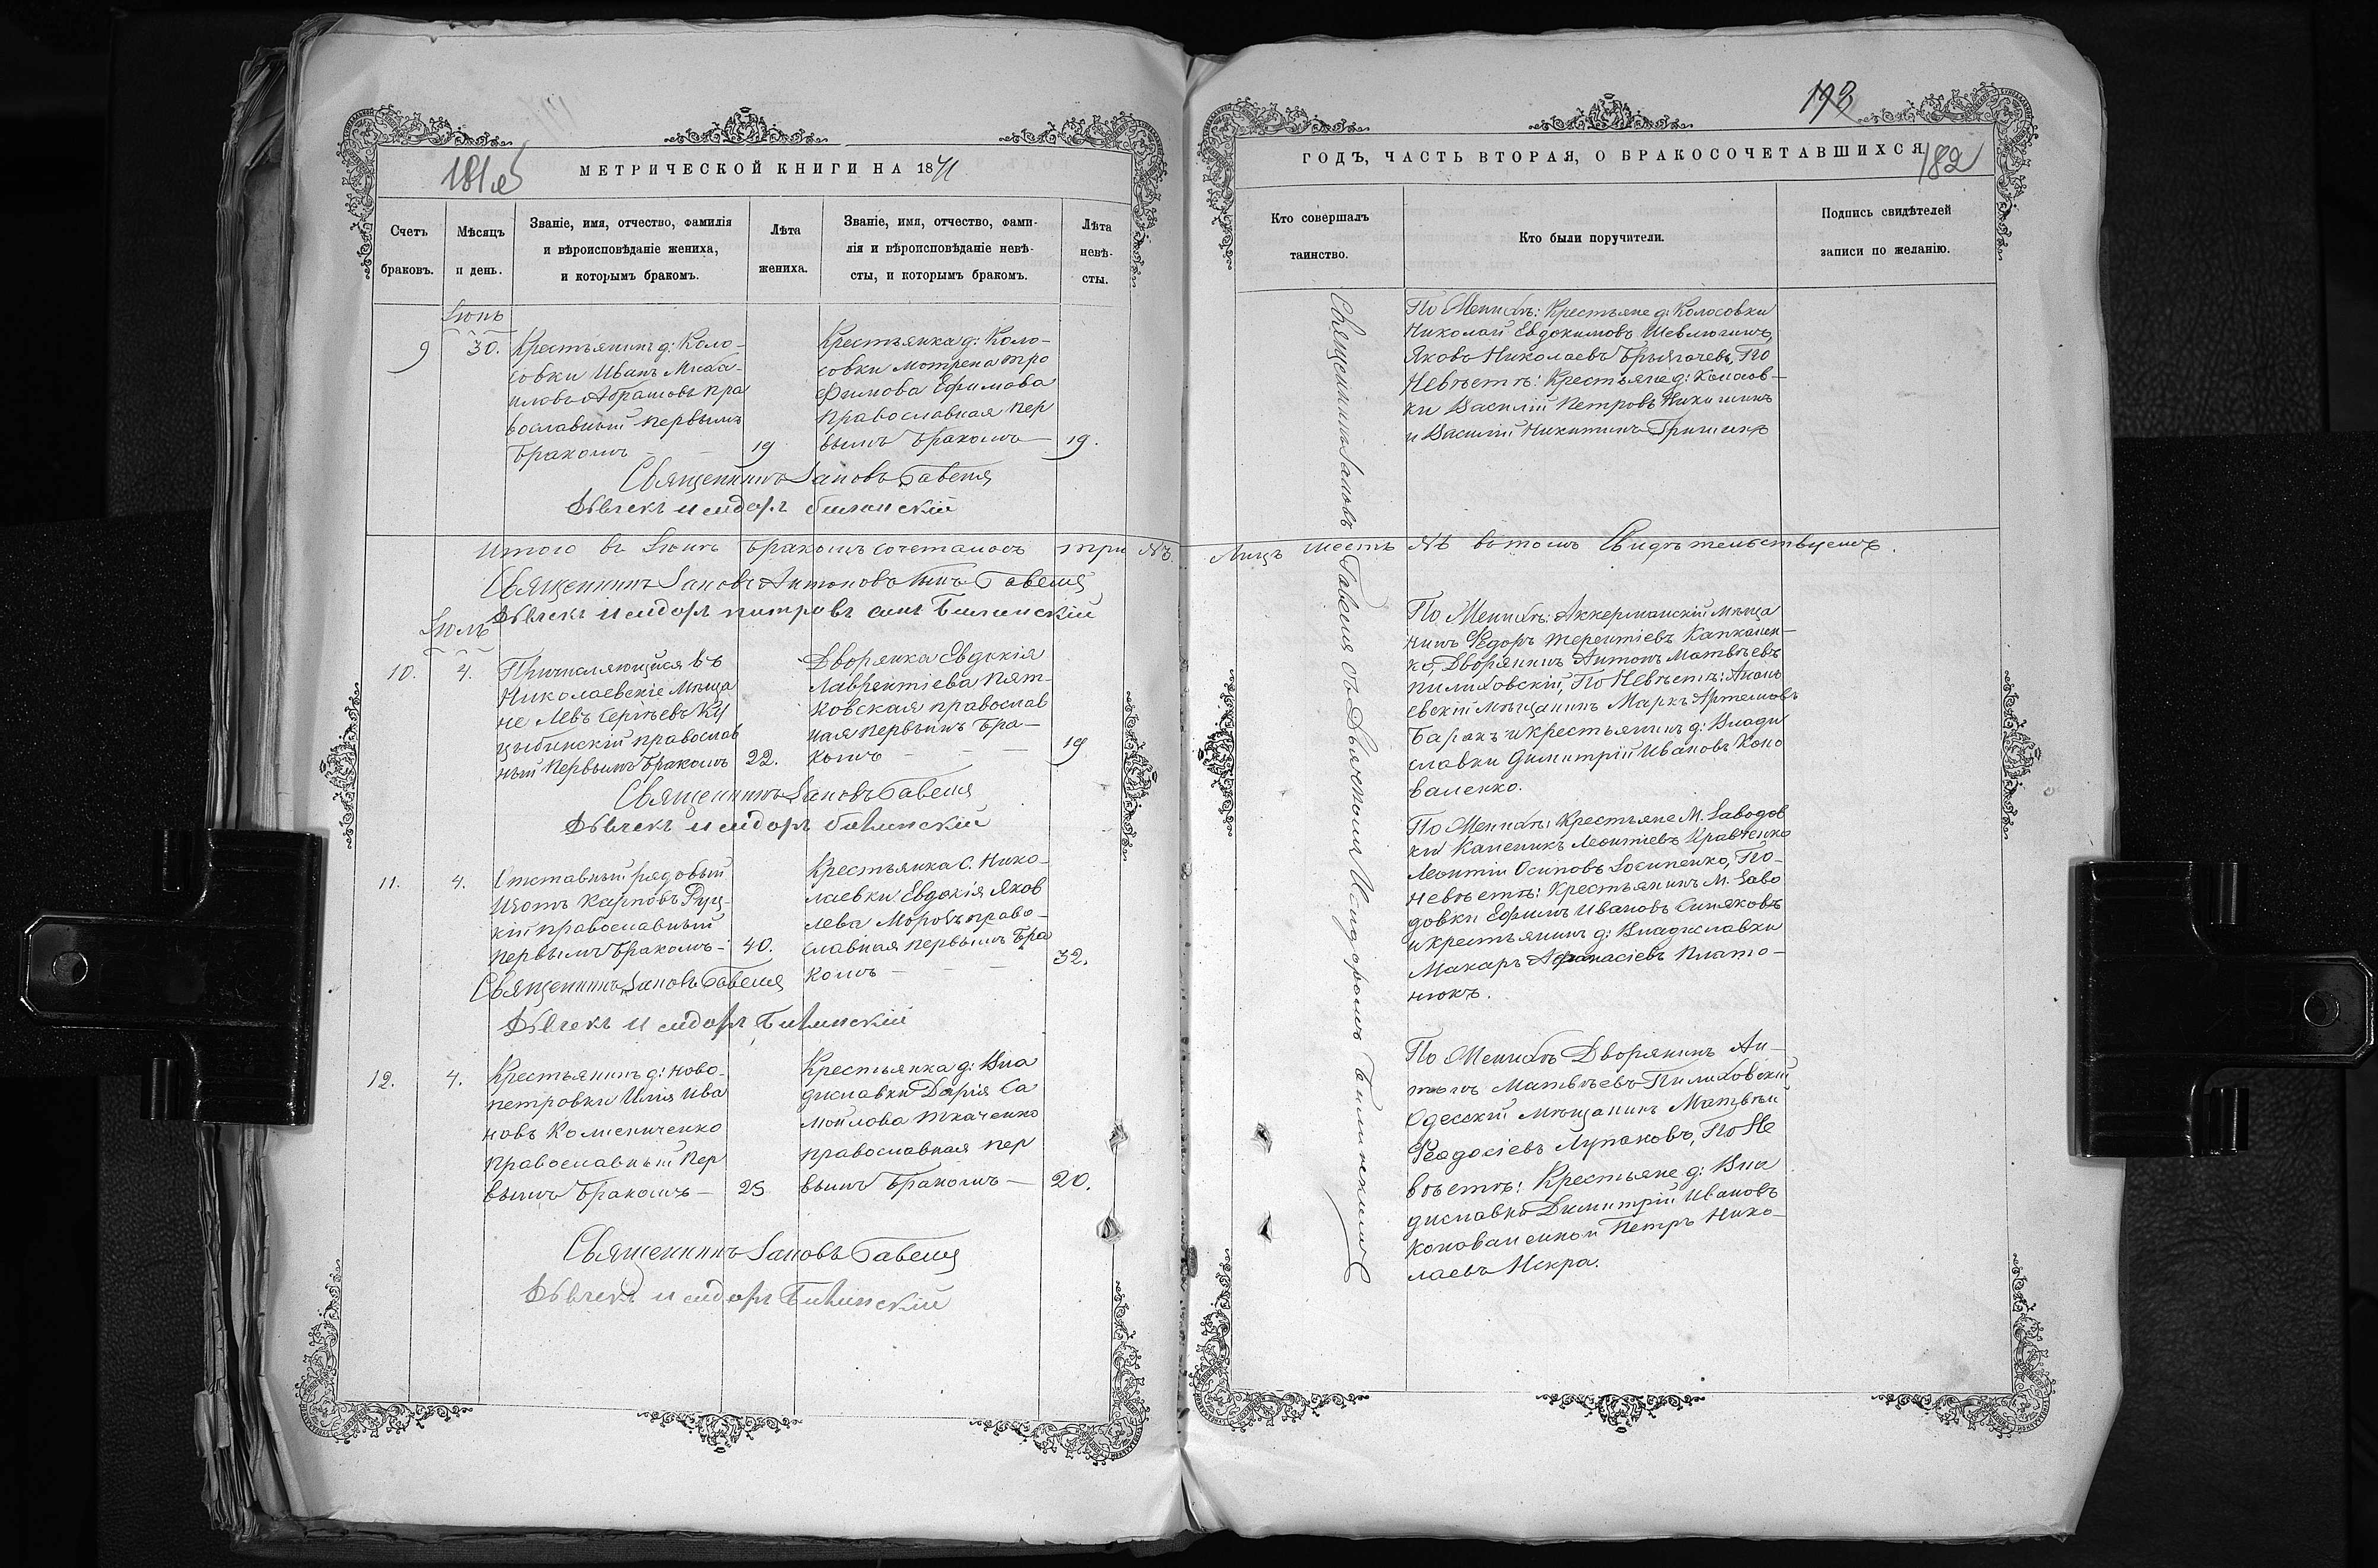 181об
МЕТРИЧЕСКОЙ КНИГИ НА 1871
Счетъ браковъ.
Мѣсяцъ и день.
Званіе, имя, отчество, фамилія
и вѣроисповѣданіе жениха,
и которымъ бракомъ.
Лѣта жениха.
Званіе, имя, отчество, фами-
лія и вѣроисповѣданіе невѣ-
сты, и которымъ бракомъ.
Лѣта невѣ- сты.
Іюнь
9
30.
Крестьянинъ д: Коло-
совки Иванъ Миха-
иловъ Абрамовъ пра
вославный первымъ
бракомъ
19
Крестьянка д: Коло-
совки Мотрена Тро
фимова Ефимова
православная пер
вымъ бракомъ
19.
Священникъ Іаковъ Гавеля
Дьячекъ Исидоръ Билинскій
Итого въ Іюнѣ бракомъ сочеталось три
Священникъ Іаковъ Антоновъ сынъ Гавеля
Дьячекъ Исидоръ Петровъ сынъ Билинскій
Іюль
10.
4.
Причисляющійся въ
Николаевскіе Мѣща
не Левъ Сергѣевъ Ку
цыбинскій православ
ный первымъ бракомъ
22.
Дворянка Евдокія
Лаврентіева Пят-
ковская православ
ная первымъ бра-
комъ
19
Священникъ Іаковъ Гавеля
Дьячекъ Исидоръ Билинскій
11.
4.
Отставный рядовый
Изотъ Карповъ Руц-
кій православный
первымъ бракомъ-
40.
Крестьянка с. Нико-
лаевки Евдокія Яков
лева Морозъ право-
славная первымъ бра
комъ
32.
Священникъ Іаковъ Гавеля
Дьячекъ Исидоръ Билинскій
12.
4.
Крестьянинъ д: Ново-
петровки Илія Ива
новъ Колисниченко
православный пер
вымъ бракомъ-
25
Крестьянка д: Вла
диславки Дарія Са
мойлова Ткаченко
православная пер
вымъ бракомъ-
20.
Священникъ Іаковъ Гавеля
Дьячекъ Исидоръ Билинскій
193
182
ГОДЪ, ЧАСТЬ ВТОРАЯ, О БРАКОСОЧЕТАВШИХСЯ
Кто совершалъ
таинство.
Кто были поручители.
Подпись свидѣтелей
записи по желанію.
Священникъ Іаковъ Гавеля съ Дьячкомъ Исидоромъ Билинскимъ
По Женихѣ: Крестьяне д: Колосовки
Николай Евдокимовъ
Яковъ Николаевъ По
Невѣстѣ: Крестьяне д: Колосов-
ки Василій Петровъ Никишинъ
и Василій Никитинъ Гришинъ
Лицъ шесть въ томъ Свидѣтельствуемъ.
По Женихѣ: Аккерманскій мѣща
нинъ Ѳедоръ Терентіевъ Капканен-
ко, Дворянинъ Антонъ Матвѣевъ
Пилиховскій, По Невѣстѣ: Анань
евскій мѣщанинъ Маркъ Артемовъ
и крестьянинъ д: Влади
славки Димитрій Ивановъ Коно
валенко.
По Женихѣ: Крестьяне М. Заводов
ки Каленикъ Леонтіевъ Кравченко
Леонтій Осиповъ Іосипенко, По-
невѣстѣ: Крестьянинъ М. Заво
довки Ефимъ Ивановъ Синяковъ
и крестьянинъ д: Владиславки
Макаръ Афанасіевъ Плато-
нюкъ.
По Женихѣ Дворянинъ Ан-
тонъ Матвѣевъ Пилиховскій
Одесскій мѣщанинъ Матвѣй
Ѳеодосіевъ Лупаковъ, По Не
вѣстѣ: Крестьяне д: Вла
диславки Димитрій Ивановъ
Коноваленко и Петръ Нико-
лаевъ Искра.